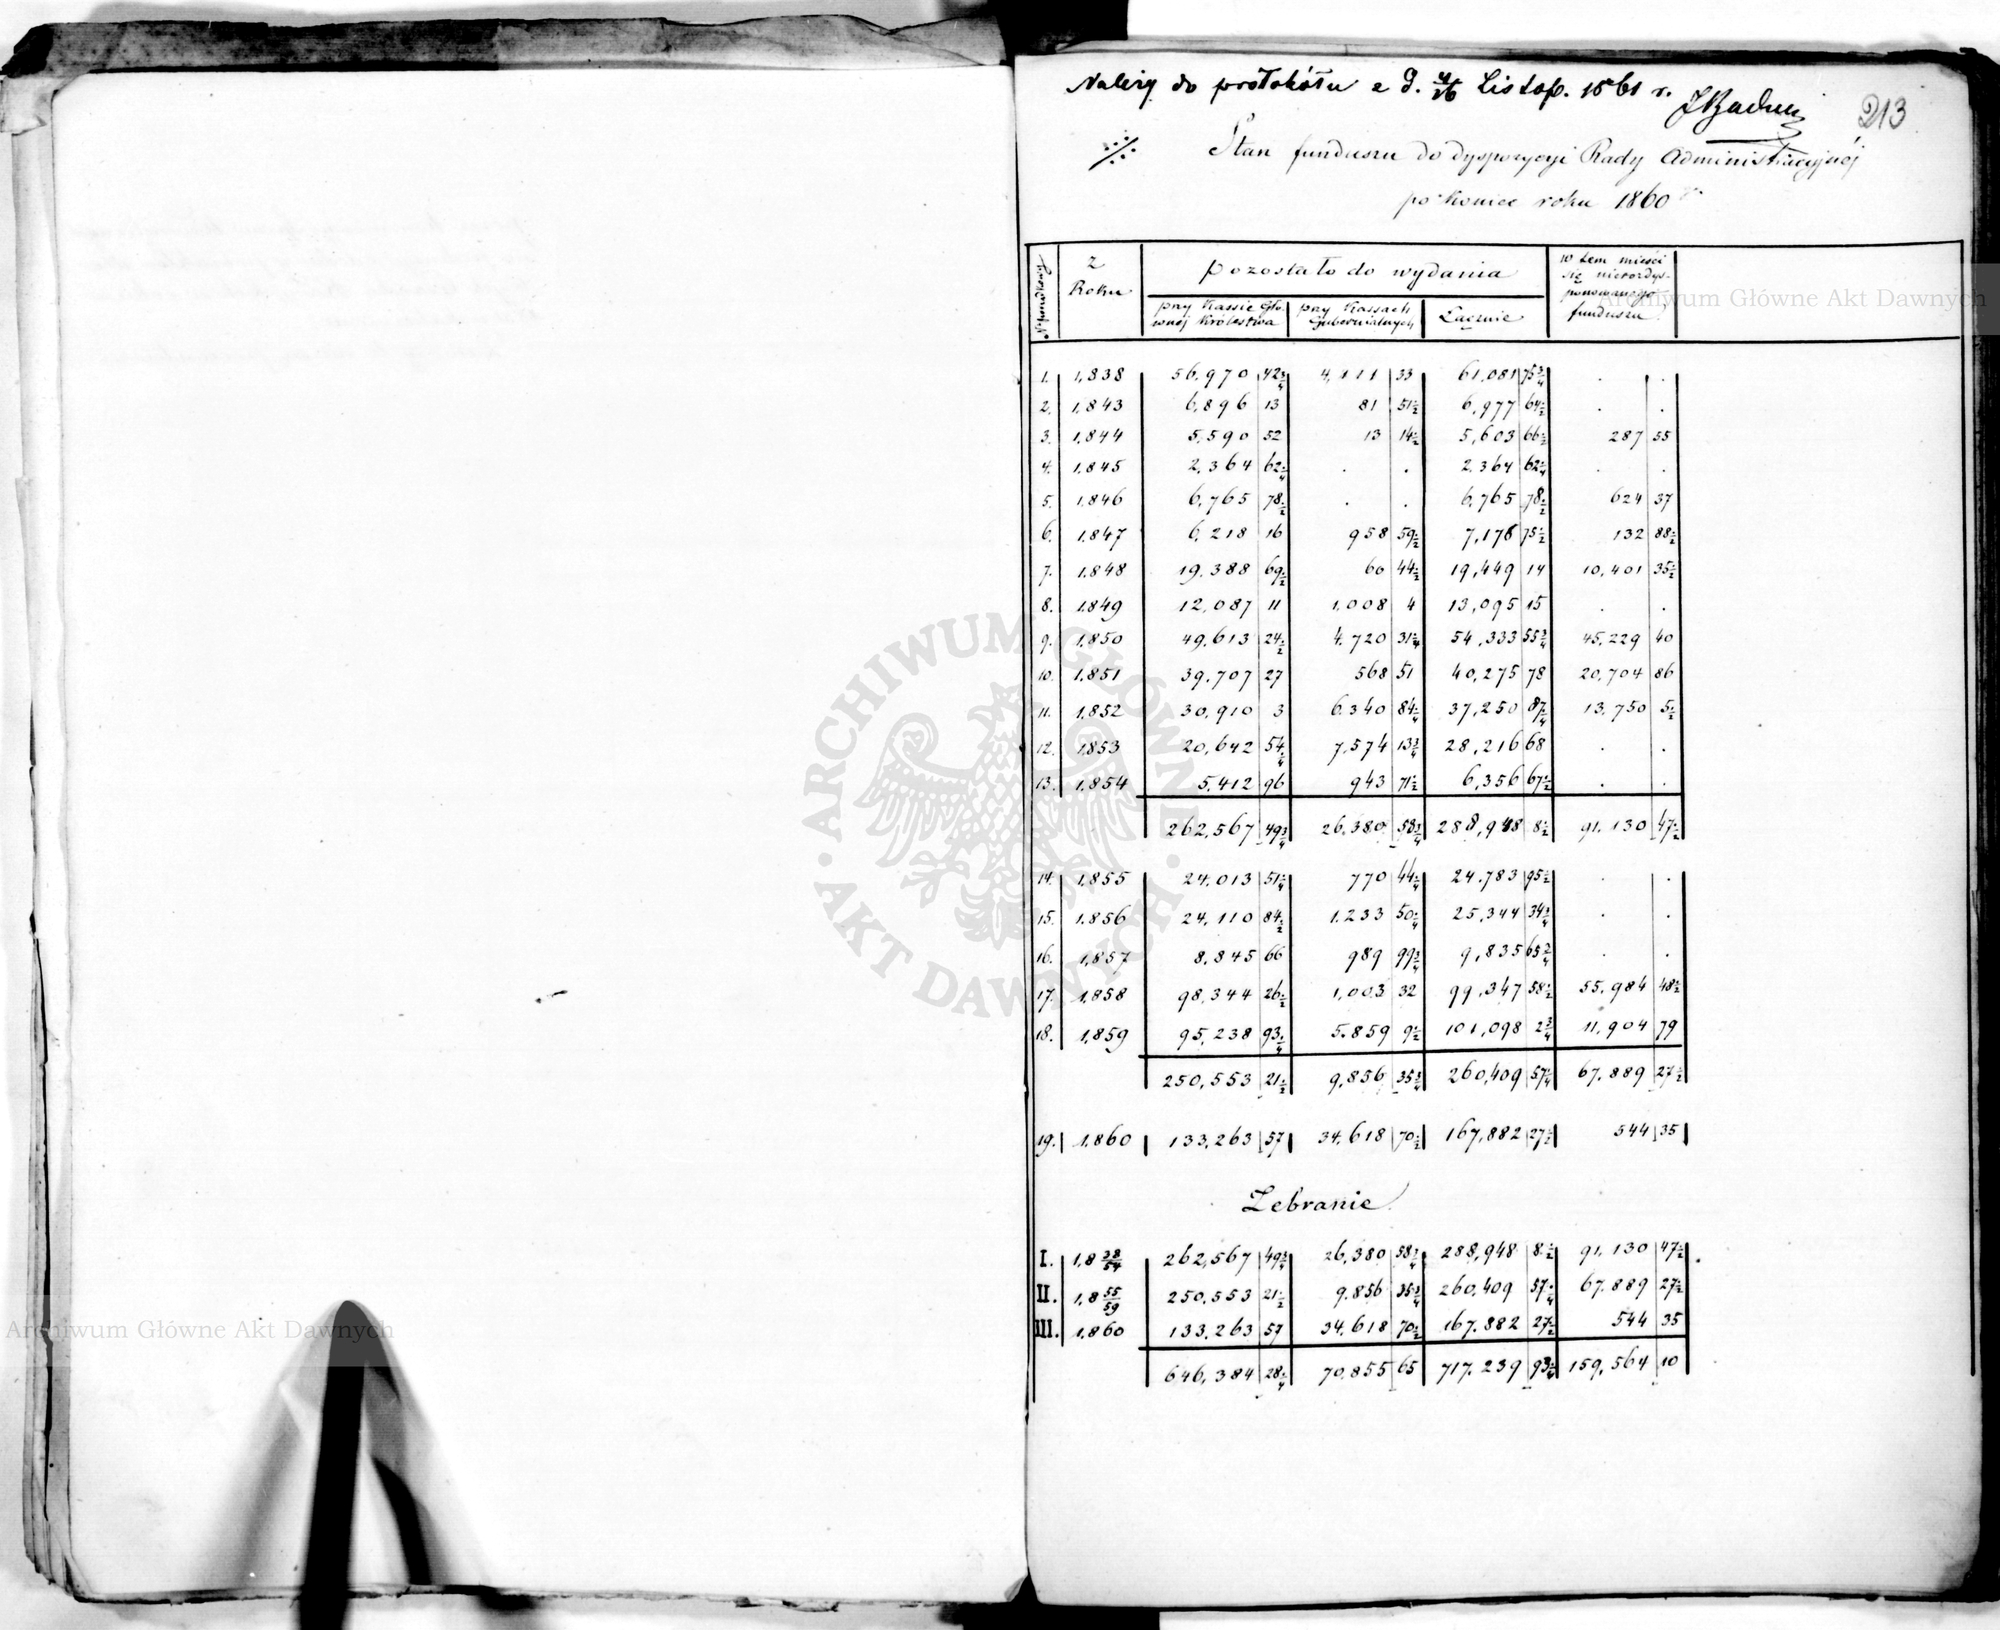 Należy do protokółu z d. 4/16 Listop. 1861 r.
213
Stan funduszu do dyspozycyi Rady Administracyjnéj
po koniec roku 1860 r.
N. porządkowy | z Roku | pozostało do wydania | w tem mieści się nierozdysponowanego funduszu
przy Kassie Głównéj Królestwa | przy Kassach Gubernialnych | Łącznie
1. 1,838 56,970 42 3/4 4,111 33 61,081 75 3/4 . .
2. 1,843 6,896 13 81 51 1/2 6,977 64 1/2 . .
3. 1,844 5,590 52 13 14 1/2 5,603 66 1/2 287 55
4. 1,845 2,364 62 1/4 . . 2,364 62 1/4 . .
5. 1,846 6,765 78 1/2 . . 6,765 78 1/2 624 37
6. 1,847 6,218 16 958 59 1/2 7,176 75 1/2 132 88 1/2
7. 1,848 19,388 69 1/2 60 44 1/2 19,449 14 10,401 35 1/2
8. 1,849 12,087 11 1,008 4 13,095 15 . .
9. 1,850 49,613 24 1/2 4,720 31 1/4 54,333 55 3/4 45,229 40
10. 1,851 39,707 27 568 51 40,275 78 20,704 86
11. 1,852 30,910 3 6,340 84 1/4 37,250 87 1/4 13,750 5 1/2
12. 1,853 20,642 54 1/4 7,574 13 3/4 28,216 68 . .
13. 1,854 5,412 96 943 71 1/2 6,356 67 1/2 . .
262,567 49 3/4 26,380 58 3/4 288,948 8 1/2 91,130 47 1/2
14. 1,855 24,013 51 1/4 770 44 1/4 24,783 95 1/2 . .
15. 1,856 24,110 84 1/2 1,233 50 1/4 25,344 34 3/4 . .
16. 1,857 8,845 66 989 99 3/4 9,835 65 3/4 . .
17. 1,858 98,344 26 1/2 1,003 32 99,347 58 1/2 55,984 48 1/2
18. 1,859 95,238 93 1/4 5,859 9 1/2 101,098 2 3/4 11,904 79
250,553 21 1/2 9,856 35 3/4 260,409 57 1/4 67,889 27 1/2
19. 1,860 133,263 57 34,618 70 1/2 167,882 27 1/2 544 35
Zebranie
I. 1,8 38/54 262,567 49 3/4 26,380 58 3/4 288,948 8 1/2 91,130 47 1/2
II. 1,8 55/59 250,553 21 1/2 9,856 35 3/4 260,409 57 1/4 67,889 27 1/2
III. 1,860 133,263 57 34,618 70 1/2 167,882 27 1/2 544 35
646,384 28 1/4 70,855 65 717,239 93 1/4 159,564 10
Archiwum Główne Akt Dawnych
ARCHIWUM GŁÓWNE AKT DAWNYCH
Archiwum Główne Akt Dawnych